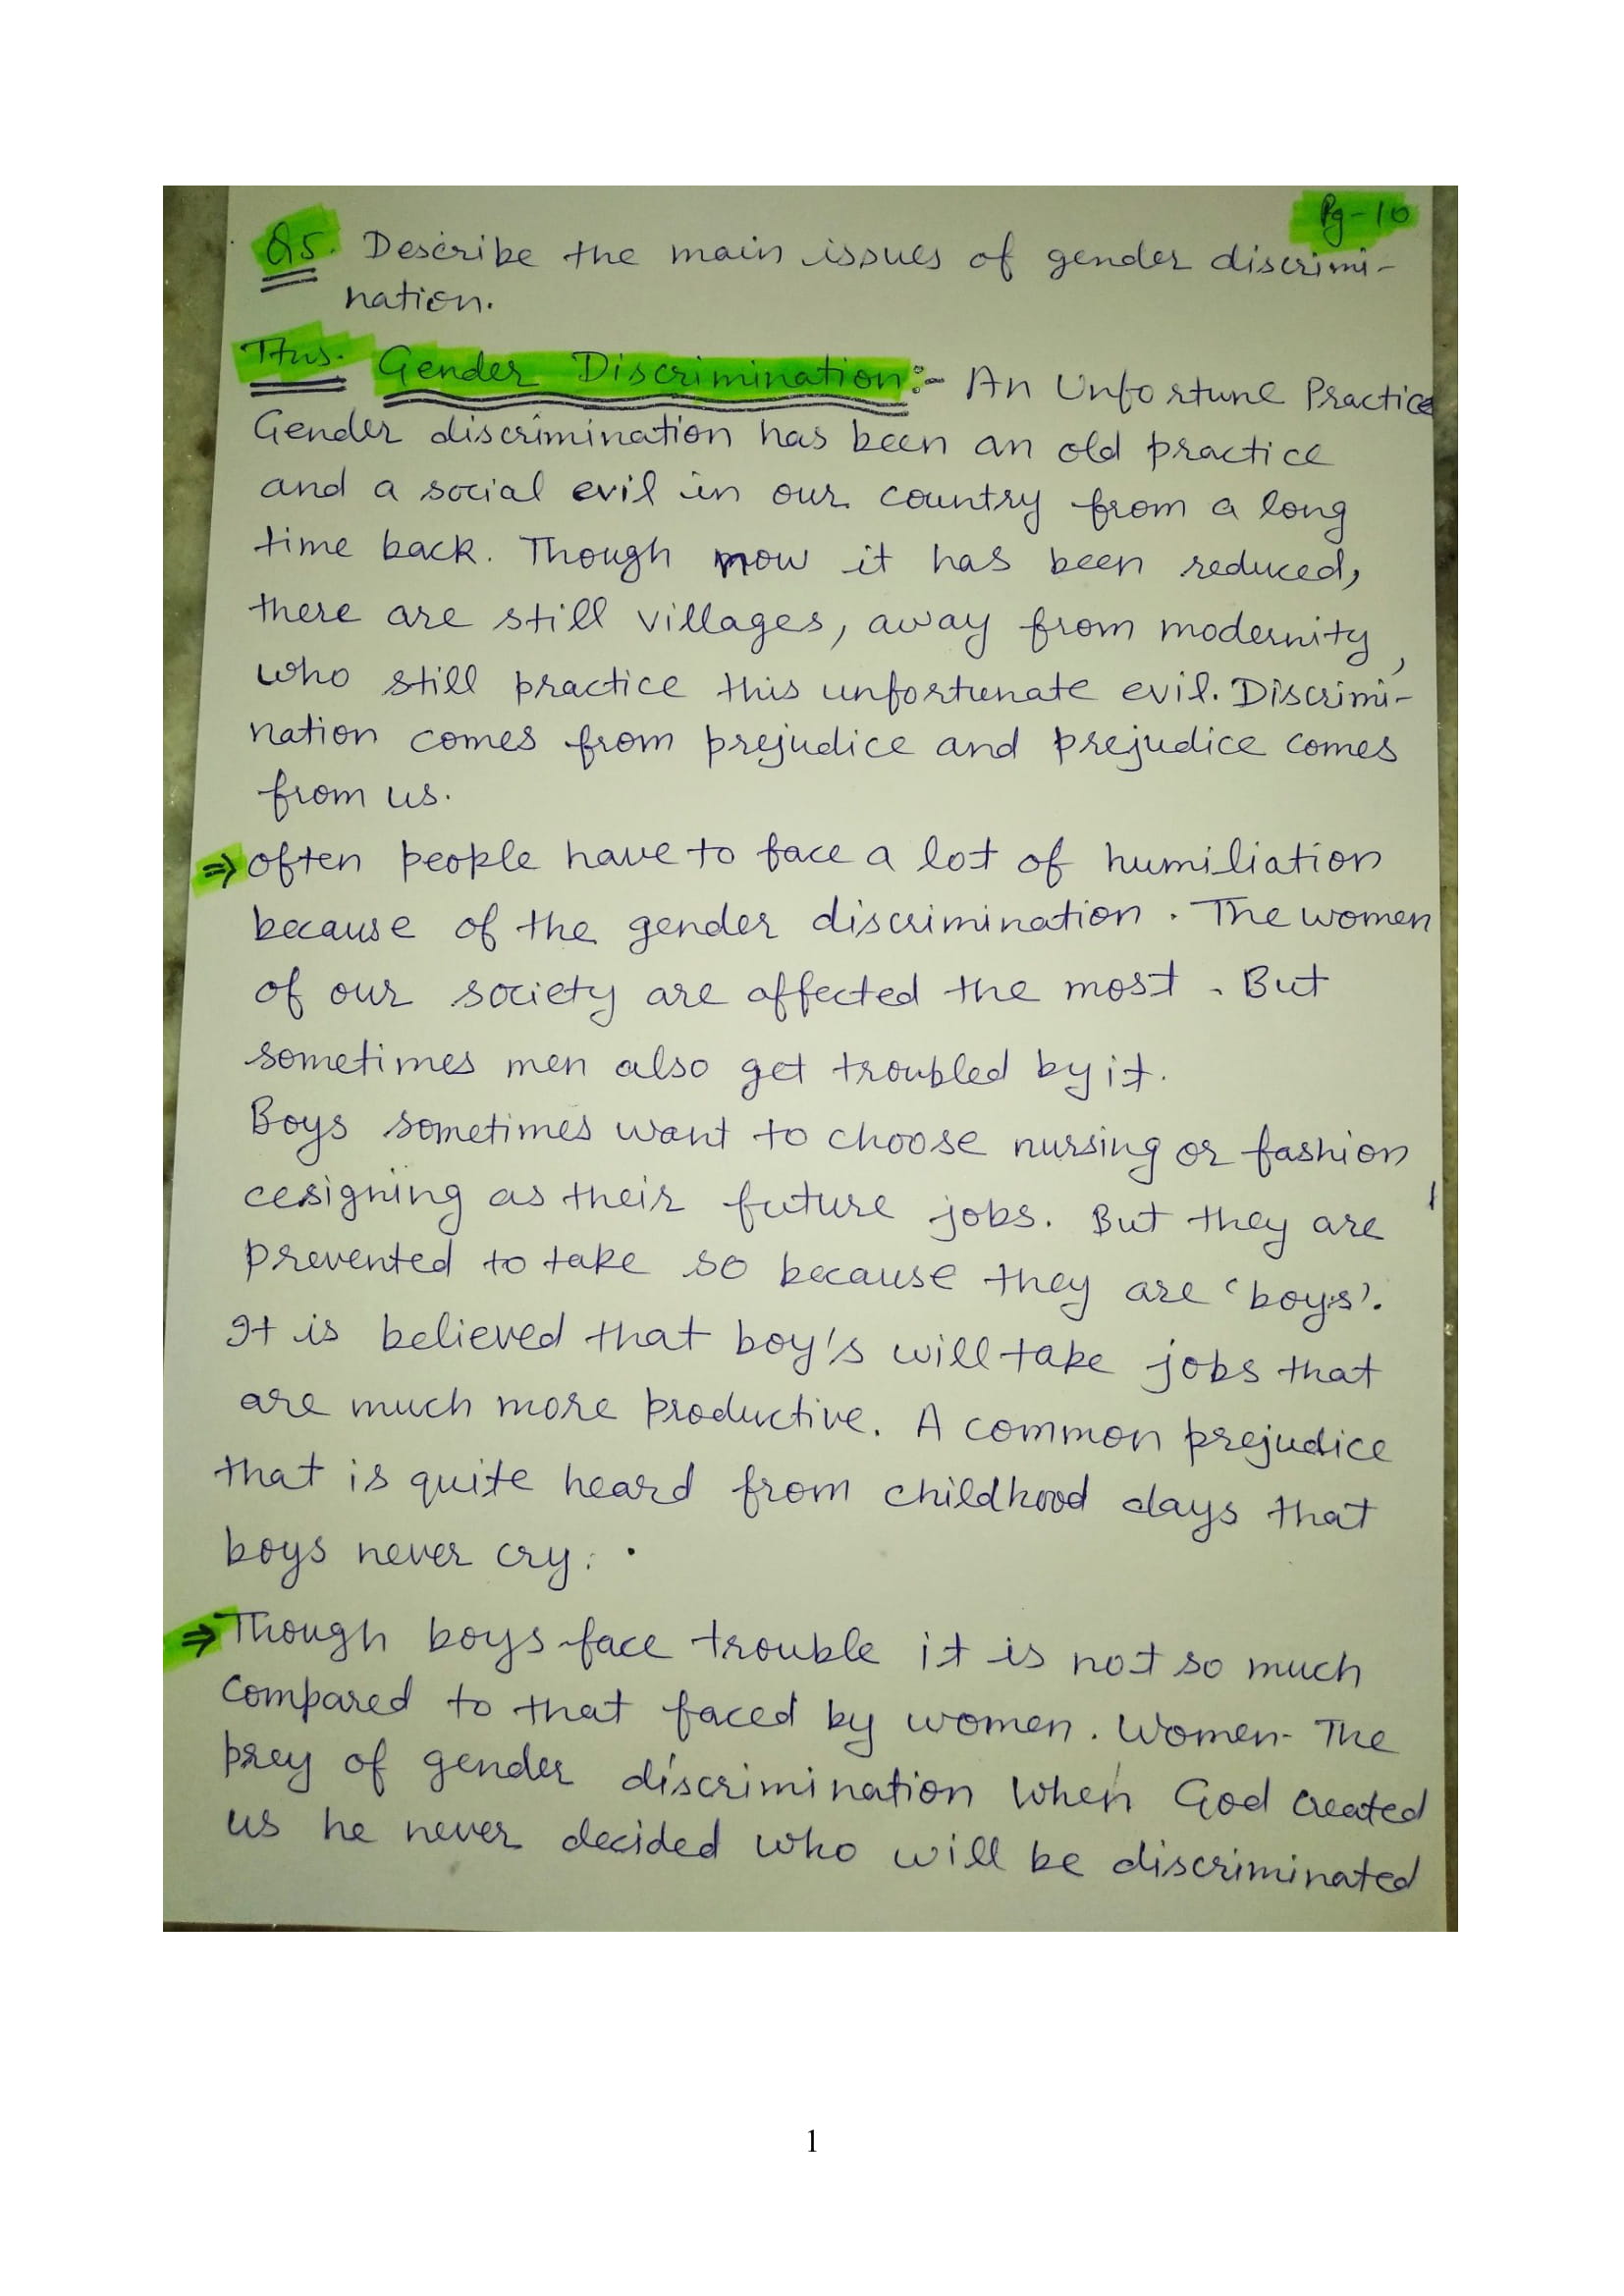 Pg-10
Q5. Describe the main issues of gender discrimi-
nation.
Ans. Gender Discrimination:- An Unfortune Practice
Gender discrimination has been an old practice
and a social evil in our country from a long
time back. Though now it has been reduced,
there are still villages, away from modernity,
who still practice this unfortunate evil. Discrimi-
nation comes from prejudice and prejudice comes
from us.
⇒ often people have to face a lot of humiliation
because of the gender discrimination. The women
of our society are affected the most. But
sometimes men also get troubled by it.
Boys sometimes want to choose nursing or fashion
cesigning as their future jobs. But they are
prevented to take so because they are 'boys'.
It is believed that boy's will take jobs that
are much more productive. A common prejudice
that is quite heard from childhood days that
boys never cry.
⇒ Though boys face trouble it is not so much
compared to that faced by women. Women- The
prey of gender discrimination When God created
us he never decided who will be discriminated
1